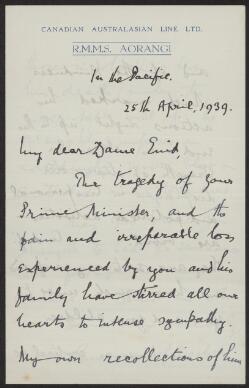 CANADIAN AUSTRALASIAN LINE LTD.
R.M.M.S. AORANGI
In the Pacific.
25th April, 1939.
My dear Dame Enid,
The tragedy of your
Prime Minister, and the
pain and irreparable loss
experienced by you and his
family have stirred all our
hearts to intense sympathy.
My own recollections of him